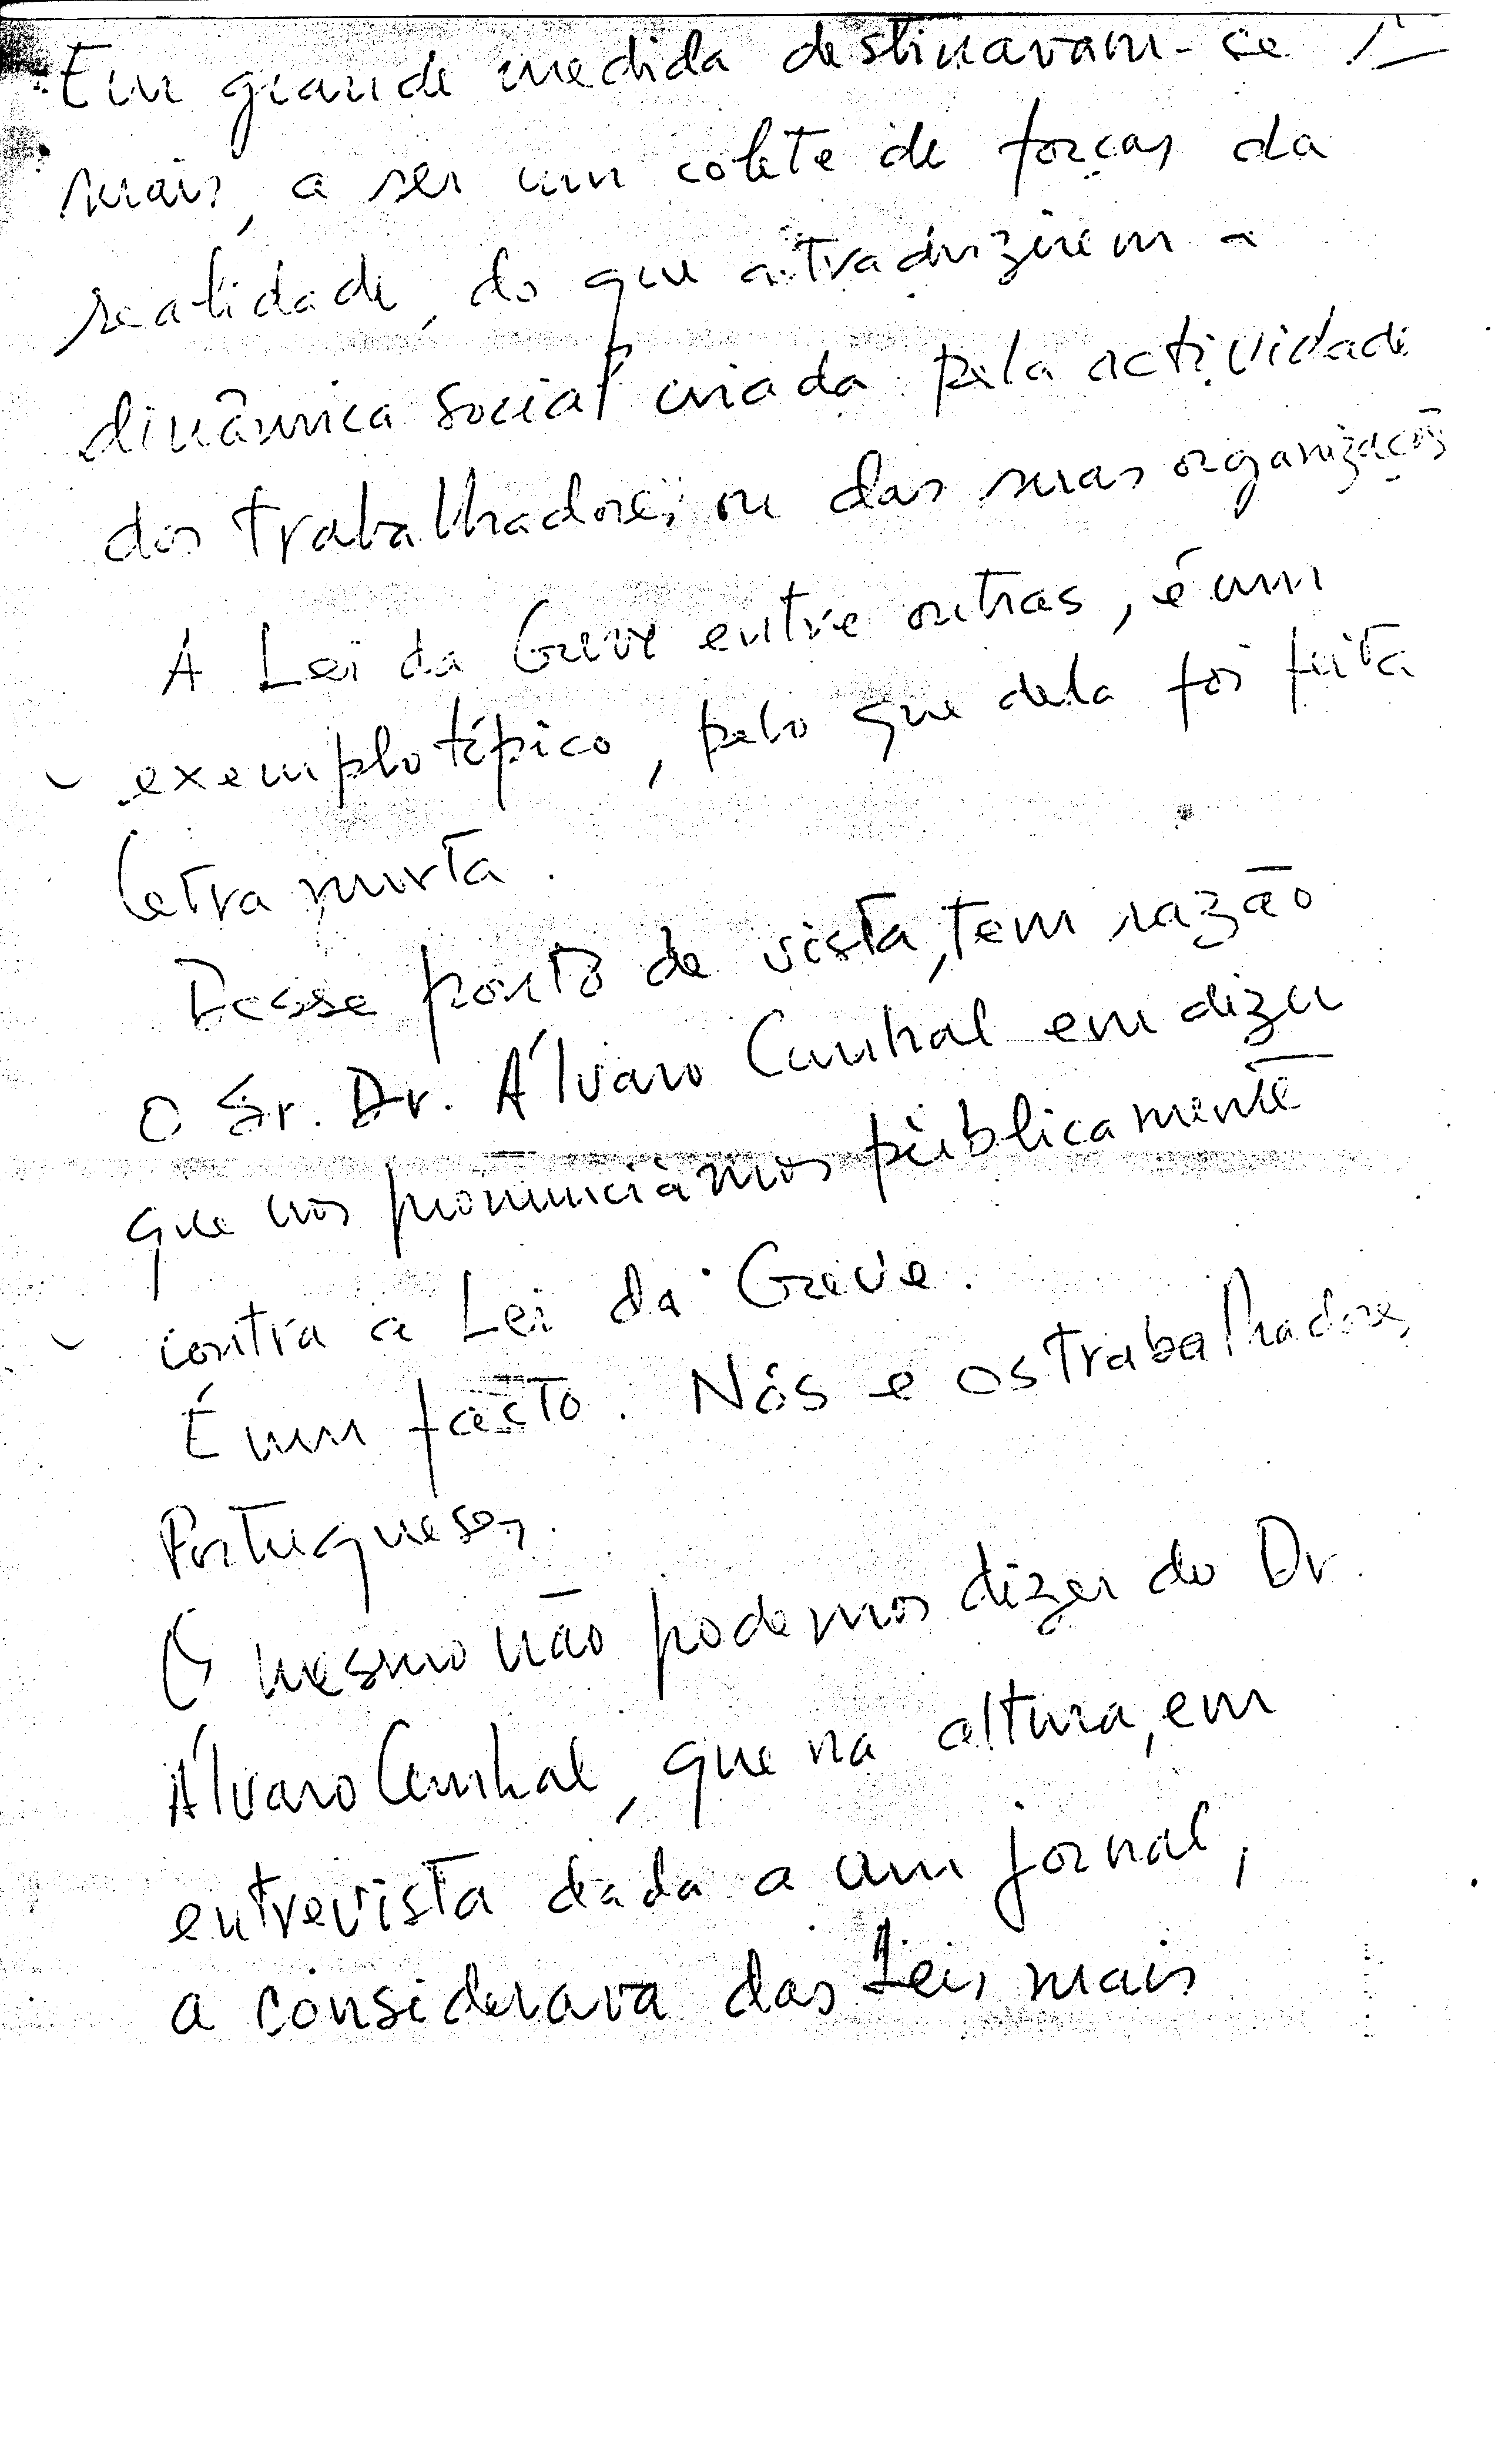 Em grande medida destinavam-se
mais, a ser um colete de forças da
realidade, do que a traduzirem a
dinâmica social criada pela actividade
dos trabalhadores, ou das suas organizações
A Lei da Greve entre outras, é um
exemplo típico, pelo que dela foi feita
letra morta.
Desse ponto de vista, tem razão
O Sr. Dr. Álvaro Cunhal em dizer
que nos pronunciámos públicamente
contra a Lei da Greve.
É um facto. Nós e os trabalhadores
Portugueses.
O mesmo não podemos dizer do Dr.
Álvaro Cunhal, que na altura, em
entrevista dada a um jornal,
a considerava das Leis mais